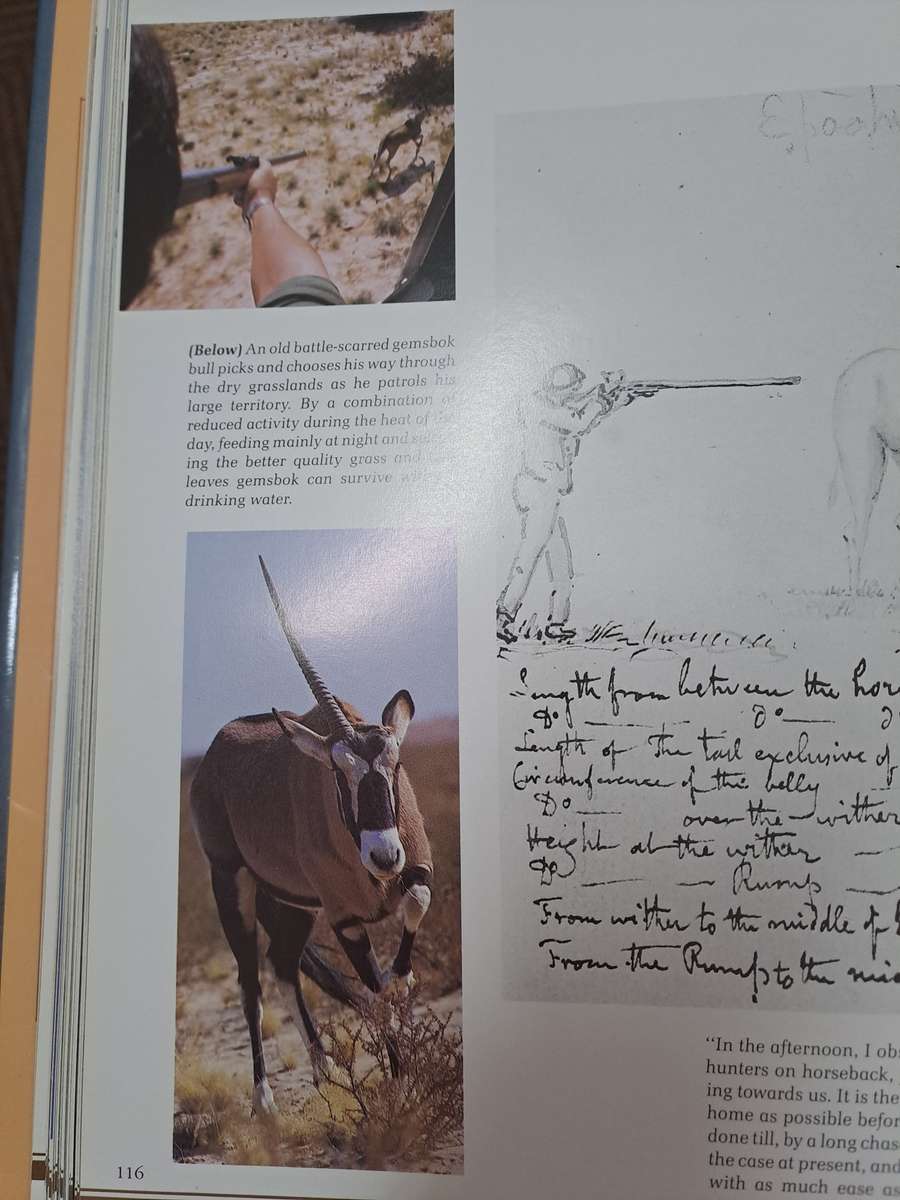 (Below) An old battle-scarred gemsbok
bull picks and chooses his way through
the dry grasslands as he patrols his
large territory. By a combination of
reduced activity during the heat of the
day, feeding mainly at night and
ing the better quality grass and
leaves gemsbok can survive
drinking water.
116
Length from between the
Do do
Length of The tail exclusive of
Circumference of the belly
Do over the wither
Height at the wither
Do Rump
From wither to the middle of
From the Rump to the
"In the afternoon, I
hunters on horseback,
ing towards us. It is the
home as possible
done till, by a long
the case at present, and
with as much ease as